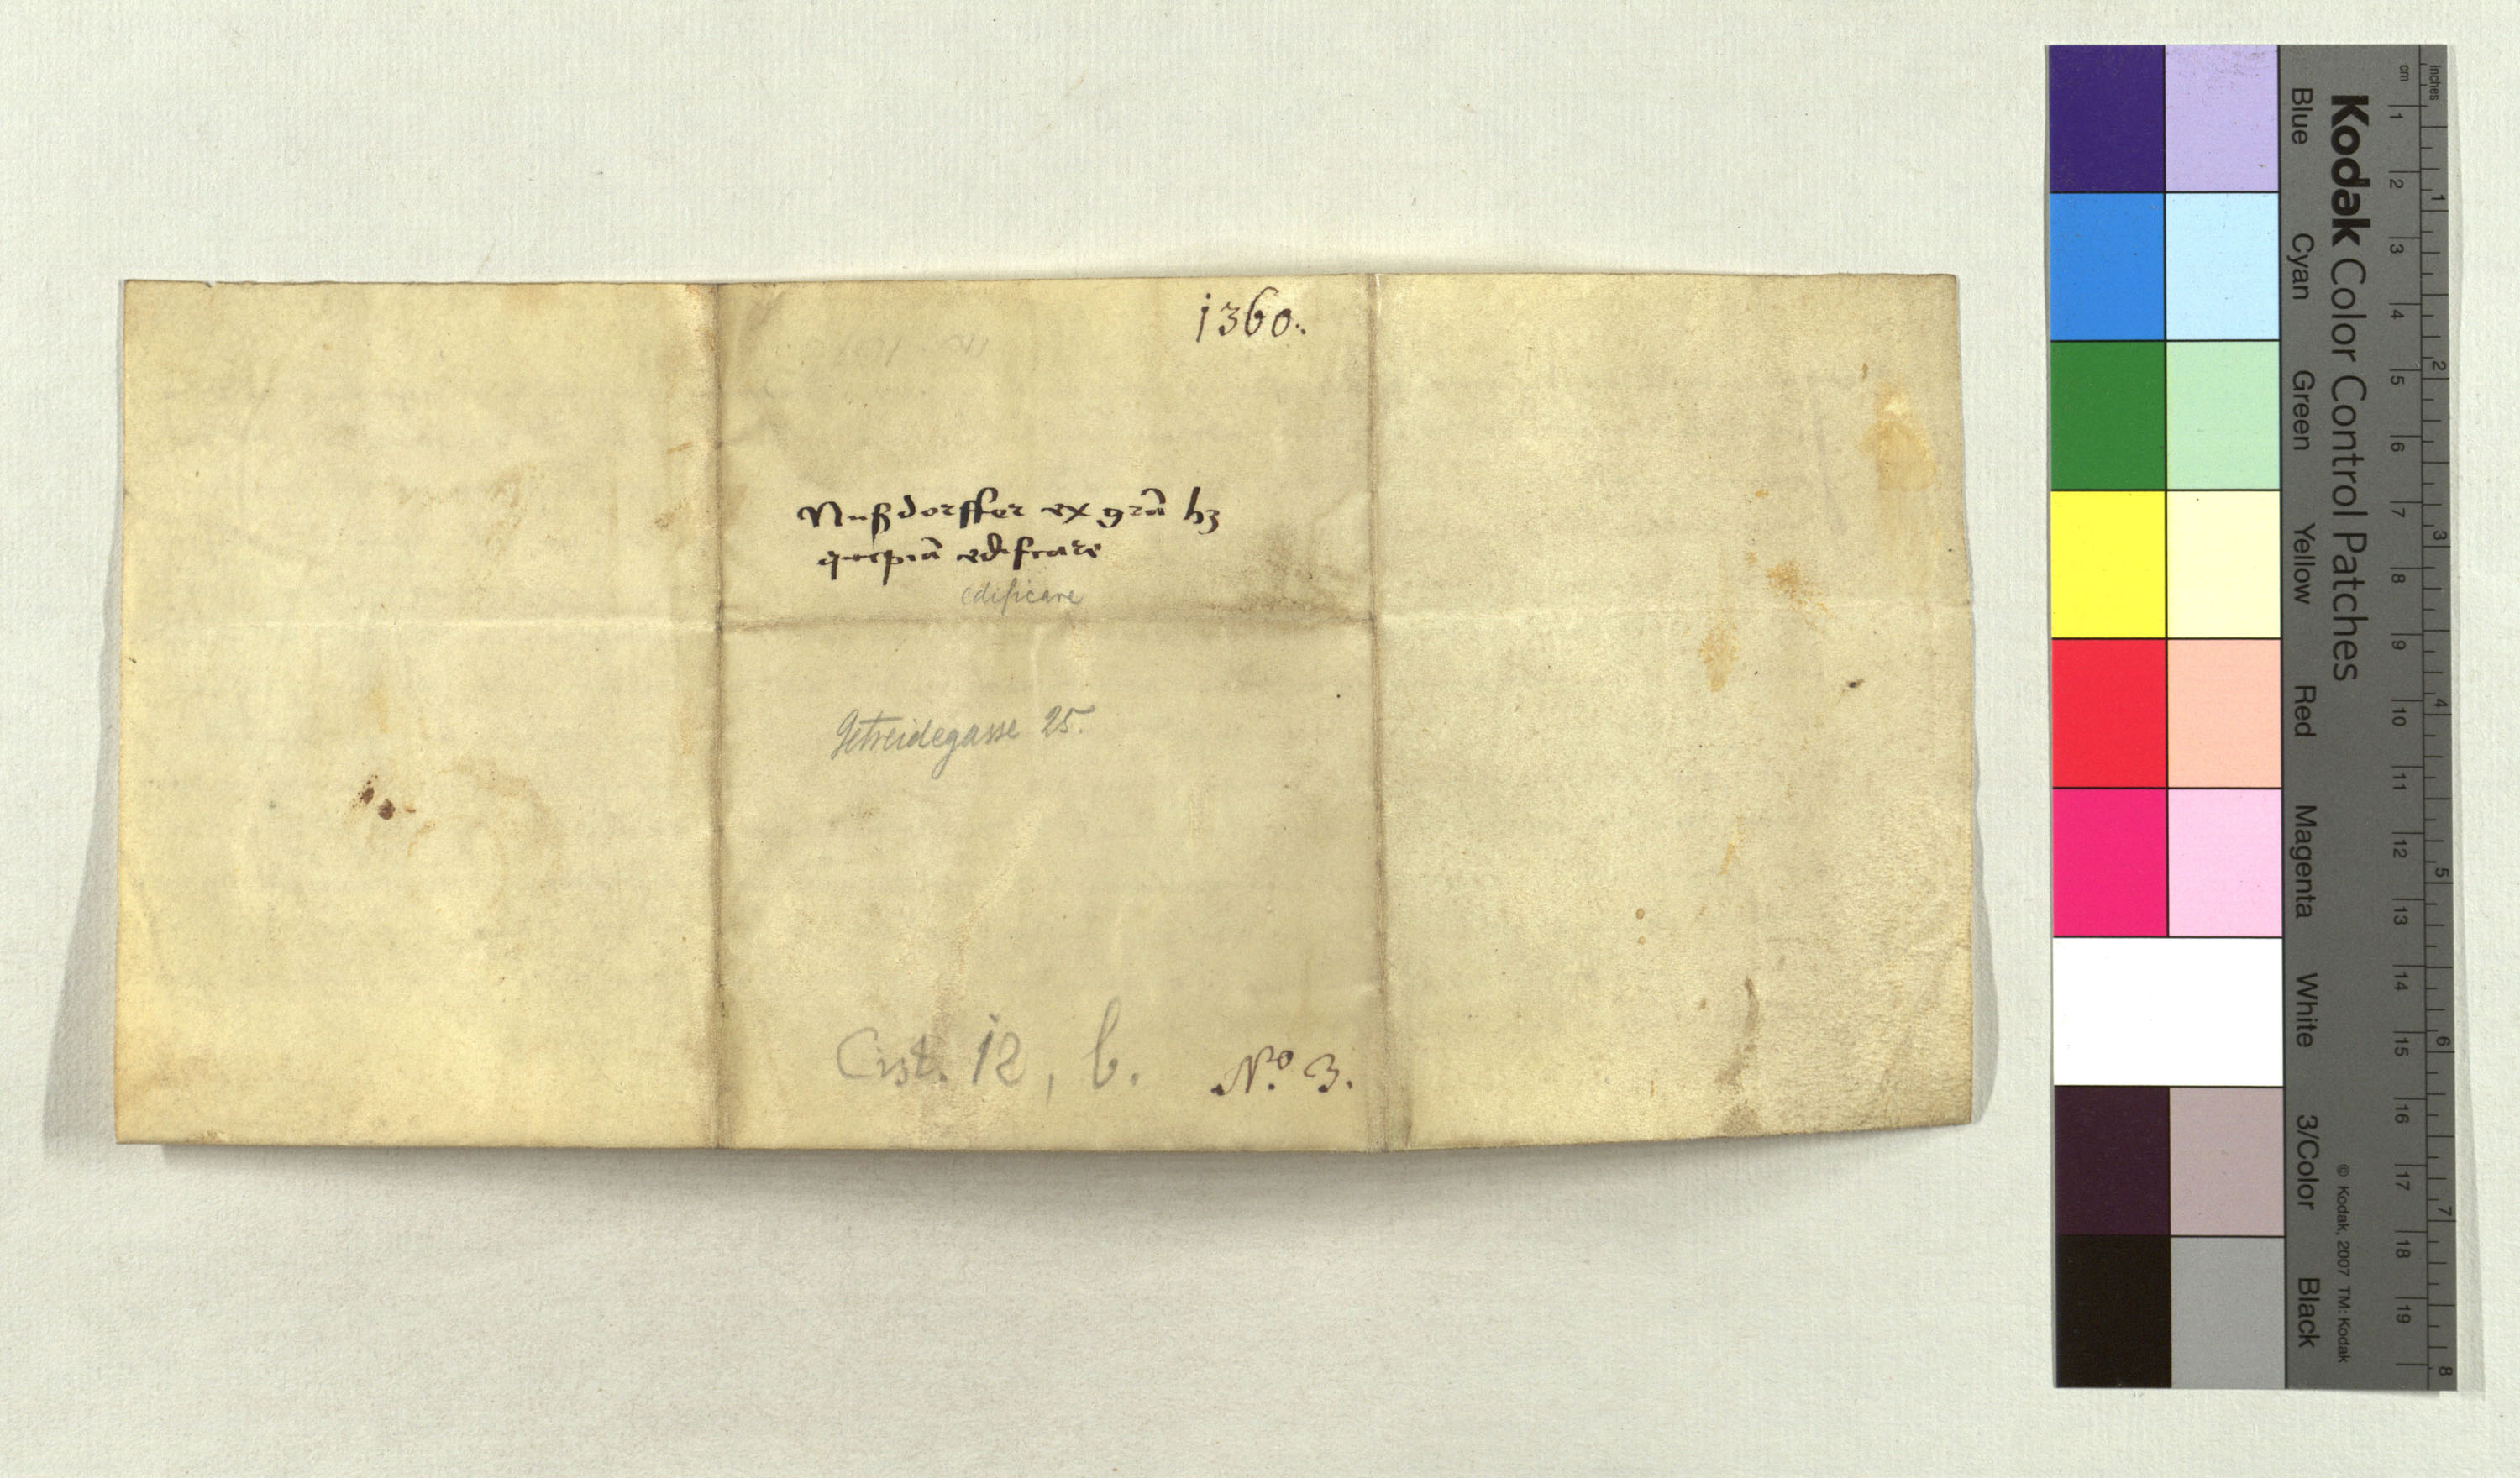 1360.
Nußdorffer ex grã hz
edificare
edificare
Getreidegasse 25.
Cist. 12, b.
No. 3.
Kodak Color Control Patches
© Kodak, 2007 TM: Kodak
Blue Cyan Green Yellow Red Magenta White 3/Color Black
cm 1 2 3 4 5 6 7 8 9 10 11 12 13 14 15 16 17 18 19
inches 1 2 3 4 5 6 7 8